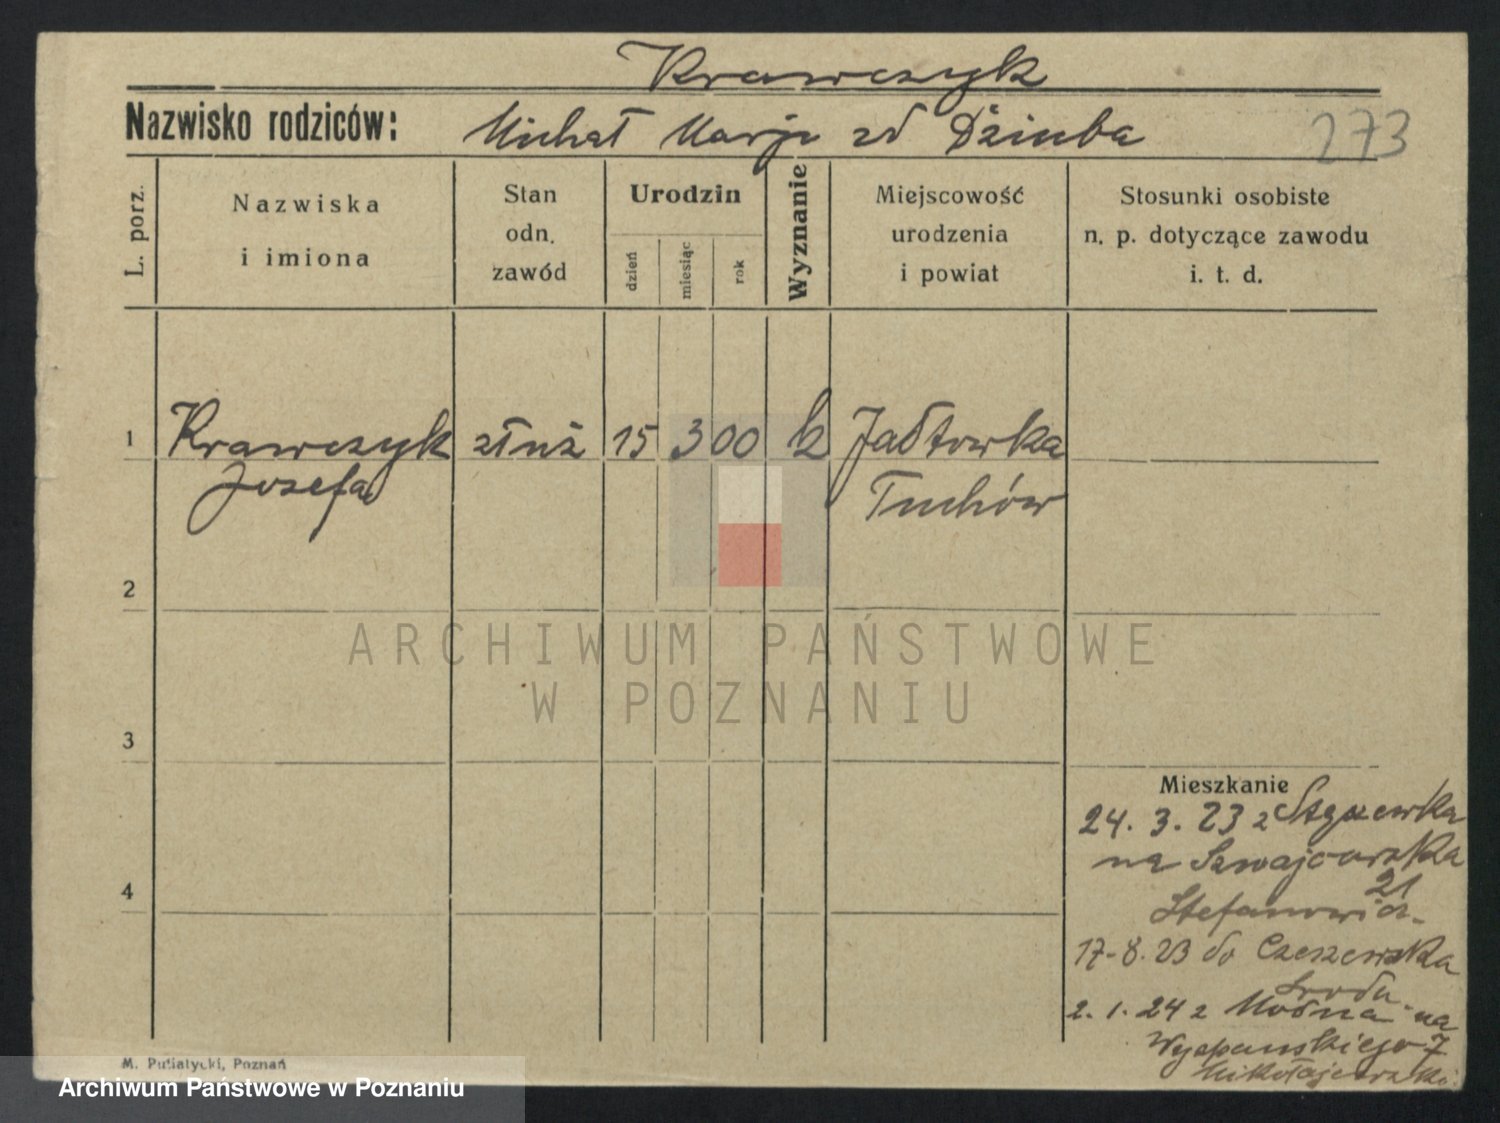 Krawczyk
Nazwisko rodziców: Michał Marja zd Dziuba 273
L. porz.
Nazwiska
i imiona
Stan
odn.
zawód
Urodzin
dzień
miesiąc
rok
Wyznanie
Miejscowość
urodzenia
i powiat
Stosunki osobiste
n. p. dotyczące zawodu
i. t. d.
1 Krawczyk służ 15 3 00 k Jodłówka
Josefa Tuchów
2
ARCHIWUM PAŃSTWOWE
W POZNANIU
3
Mieszkanie
24. 3. 23 z
na Szwajcarska
21
4
Stefanowicz
17-8. 23 do Czeszewska
Środa
2. 1. 24 z na
Wyspańskiego 7
Mikołajewski
M. Putiatycki, Poznań
Archiwum Państwowe w Poznaniu